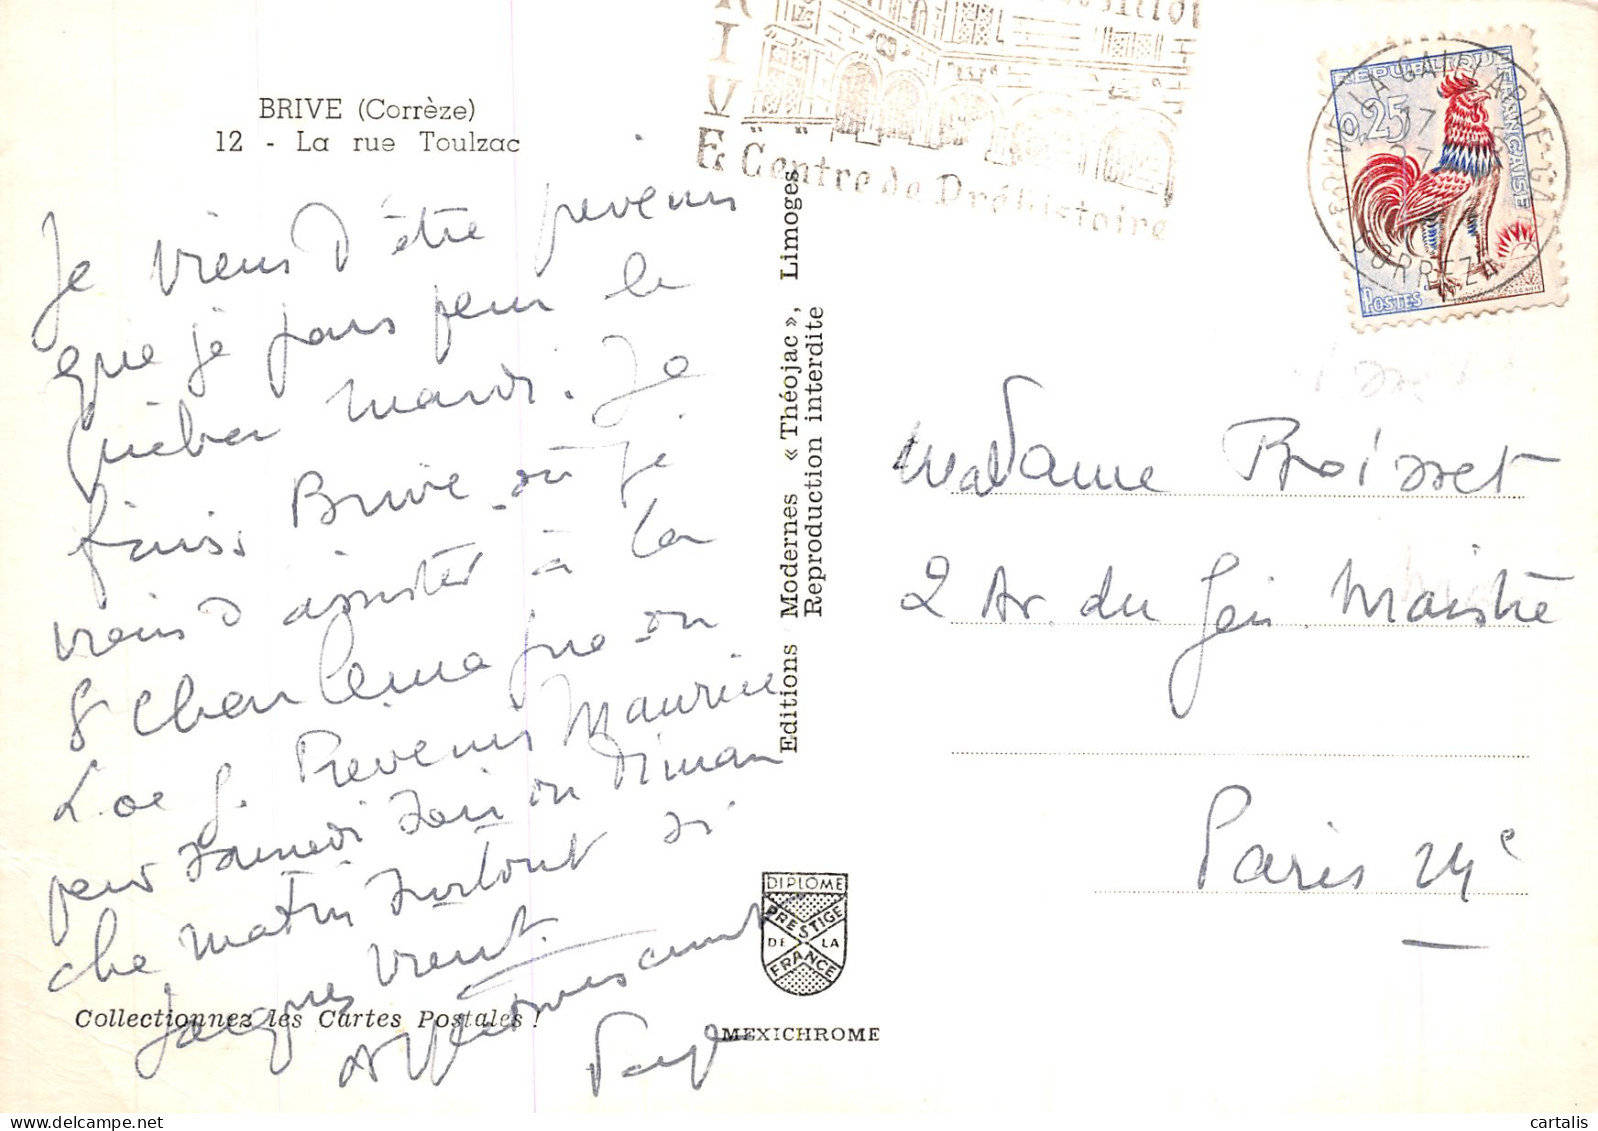 BRIVE (Corrèze)
12 - La rue Toulzac
Je viens d'être prevenu
que je pars pour le
mardi. Je
finis Brive où je
viens d'assister à la
St Charlemagne ou
Previens Maurice
pour samedi soir ou diman
che matin surtout si
Jacques vient.
Affectueusement
Editions Modernes « Théojac », Limoges
Reproduction interdite
DIPLOME
PRESTIGE
DE LA
FRANCE
Collectionnez les Cartes Postales !
MEXICHROME
BRIVE
Centre de Préhistoire
BRIVE LA GAILLARDE
CORREZE
REPUBLIQUE FRANCAISE
0,25
POSTES
Madame Boisset
2 Av. du Gén. Maistre
Paris 14e
cartalis